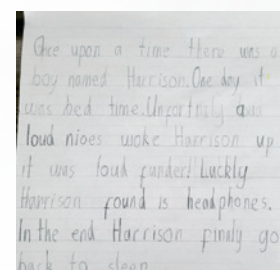 Once upon a time there was a
boy named Harrison. One day it
was bed time. Unfortnitly a
loud nioes woke Harrison up
it was loud funder! Luckly
Harrison found is headphones.
In the end Harrison finaly go
back to sleep